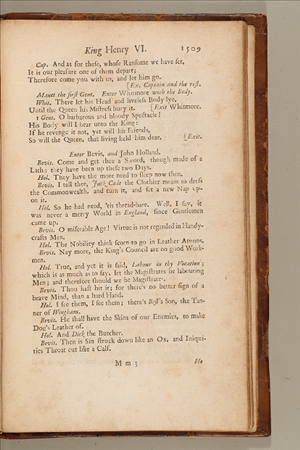 King Henry VI. 1509
Cap. And as for these, whose Ransome we have set,
It is our pleasure one of them depart;
Therefore come you with us, and let him go.
[Ex. Captain and the rest.
Manet the first Gent. Enter Whitmore with the Body.
Whit. There let his Head and liveless Body lye,
Until the Queen his Mistress bury it. [Exit Whitmore.
1 Gent. O barbarous and bloody Spectacle!
His Body will I bear unto the King:
If he revenge it not, yet will his Friends,
So will the Queen, that living held him dear. [Exit.
Enter Bevis, and John Holland.
Bevis. Come and get thee a Sword, though made of a
Lath; they have been up these two Days.
Hol. They have the more need to sleep now then.
Bevis. I tell thee, Jack Cade the Clothier means to dress
the Commonwealth, and turn it, and set a new Nap up-
on it.
Hol. So he had need, 'tis thread-bare. Well, I say, it
was never a merry World in England, since Gentlemen
came up.
Bevis. O miserable Age! Virtue is not regarded in Handy-
crafts Men.
Hol. The Nobility think scorn to go in Leather Aprons.
Bevis. Nay more, the King's Council are no good Work-
men.
Hol. True, and yet it is said, Labour in thy Vocation;
which is as much as to say, let the Magistrates be labouring
Men; and therefore should we be Magistrates.
Bevis. Thou hast hit it; for there's no better sign of a
brave Mind, than a hard Hand.
Hol. I see them, I see them; there's Best's Son, the Tan-
ner of Wingham.
Bevis. He shall have the Skins of our Enemies, to make
Dog's Leather of.
Hol. And Dick the Butcher.
Bevis. Then is Sin struck down like an Ox, and Iniqui-
ties Throat cut like a Calf.
M m 3 Ho